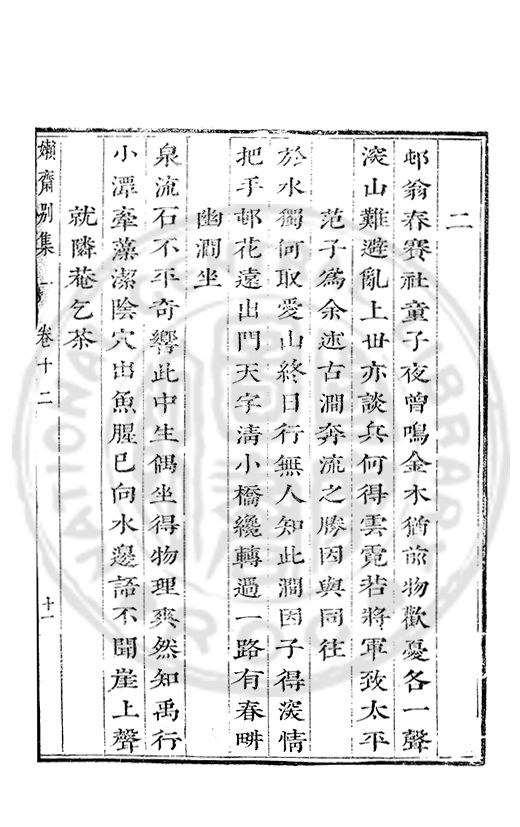 二
邨翁春賽社童子夜曾鳴金木猶前物歡憂各一聲
深山難避亂上世亦談兵何得雲霓若將軍致太平
范子爲余述古澗奔流之勝因與同往
於水獨何取愛山終日行無人知此澗因子得深情
把手邨花遠出門天字淸小橋纔轉過一路有春畊
幽澗坐
泉流石不平奇響此中生偶坐得物理爽然知禹行
小潭牽藻潔陰穴出魚腥已向水邊語不聞崖上聲
就隣菴乞茶
嬾齋別集
卷十二
十一